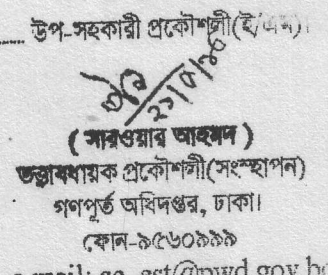 উপ-সহকারী প্রকৌশলী(ই/এম)।
( সারওয়ার আহমদ )
তত্ত্বাবধায়ক প্রকৌশলী(সংস্থাপন)
গণপূর্ত অধিদপ্তর, ঢাকা।
ফোন-৯৫৬০৯৯৯
e-mail: se_est@pwd.gov.bd